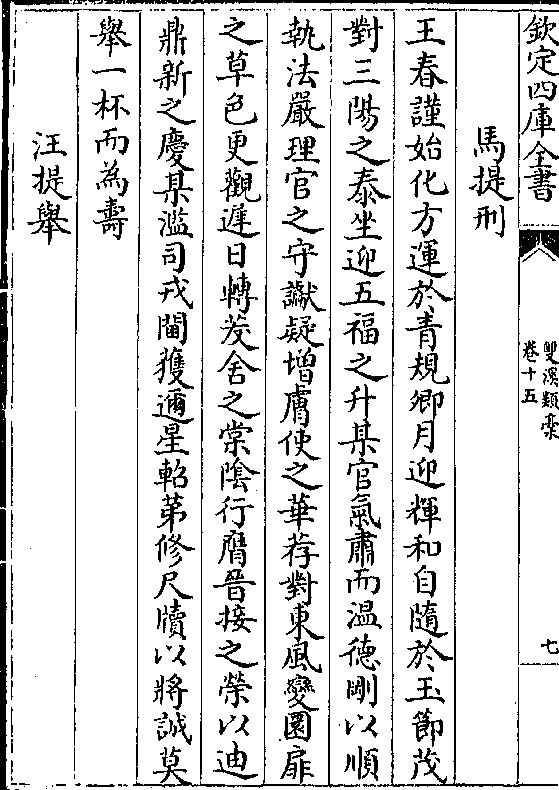 欽定四庫全書
雙溪類稾
卷十五
七
馬提刑
王春謹始化方運於青規卿月迎輝和自隨於玉節茂
對三陽之泰坐迎五福之升某官氣肅而温德剛以順
執法嚴理官之守讞疑增膚使之華荐對東風變圜扉
之草色更觀遲日轉茇舍之棠陰行膺晉接之榮以迪
鼎新之慶某濫司戎閫獲邇星軺第修尺牘以將誠莫
舉一杯而為壽
汪提舉